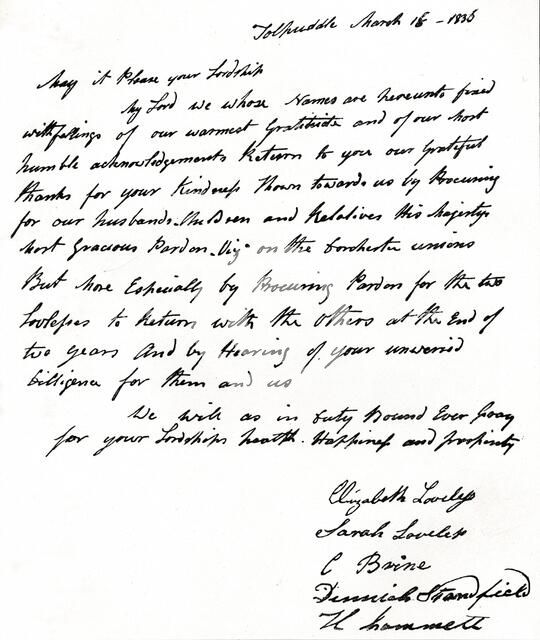 Tolpuddle March 18 - 1836
May it Please your Lordship
My Lord we whose Names are hereunto fixed
with fealings of our warmest Gratitude and of our most
humble acknowledgements Return to you our Grateful
thanks for your Kindness Shown towards us by Procuring
for our husbands and Relatives His Majestys
most Gracious Pardon. Viz on the Dorchester unions
But More Especially by Procuring Pardon for the two
Lovlesses to Return with the Others at the End of
two years And by Hearing of your unweried
Diligence for them and us
We will as in Duty Bound Ever pray
for your Lordships health. Happiness and prosperity
Elizabeth Loveless
Sarah Loveless
C Brine
Standfield
H Hammett